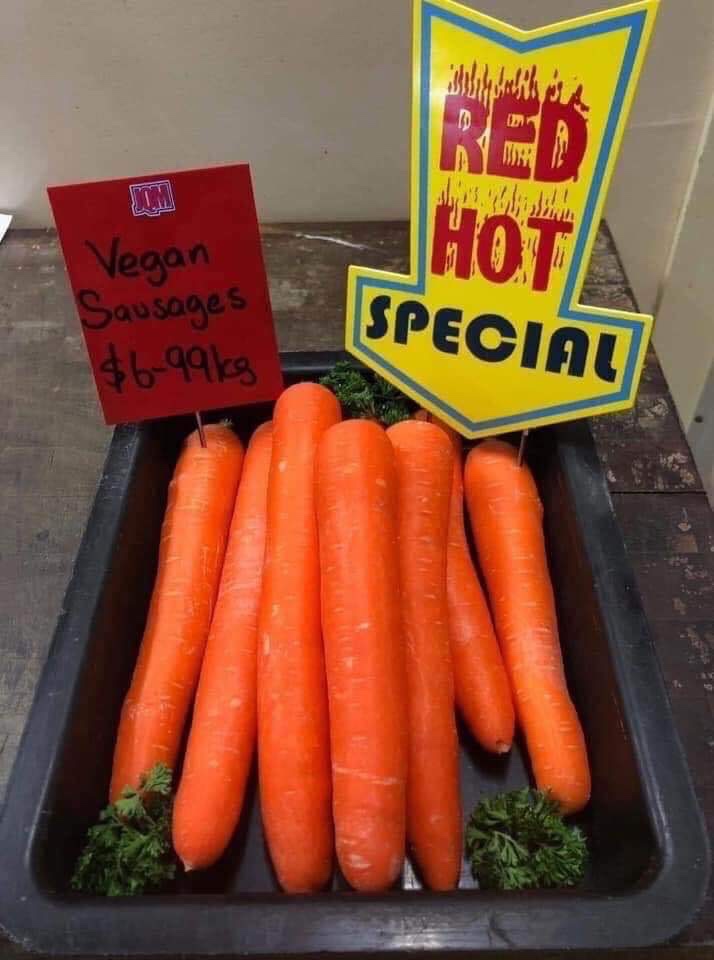 JQM
Vegan
Sausages
$6-99kg
RED
HOT
SPECIAL